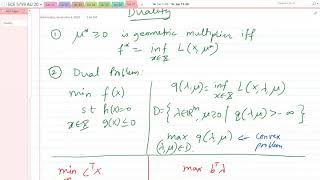 ECE 5759 AU 20
Duality
① μ* ≥ 0 is geometric multiplier iff
f* = inf L(x, μ*)
x∈X
② Dual Problem:
min f(x)
s.t h(x)=0
x∈X g(x)≤0
q(λ,μ) = inf L(x,λ,μ)
x∈X
D = { λ∈ℝᵐ, μ≥0 | q(λ,μ) > -∞ }
max q(λ,μ) ← convex
(λ,μ)∈D problem
min cᵀx
max bᵀλ